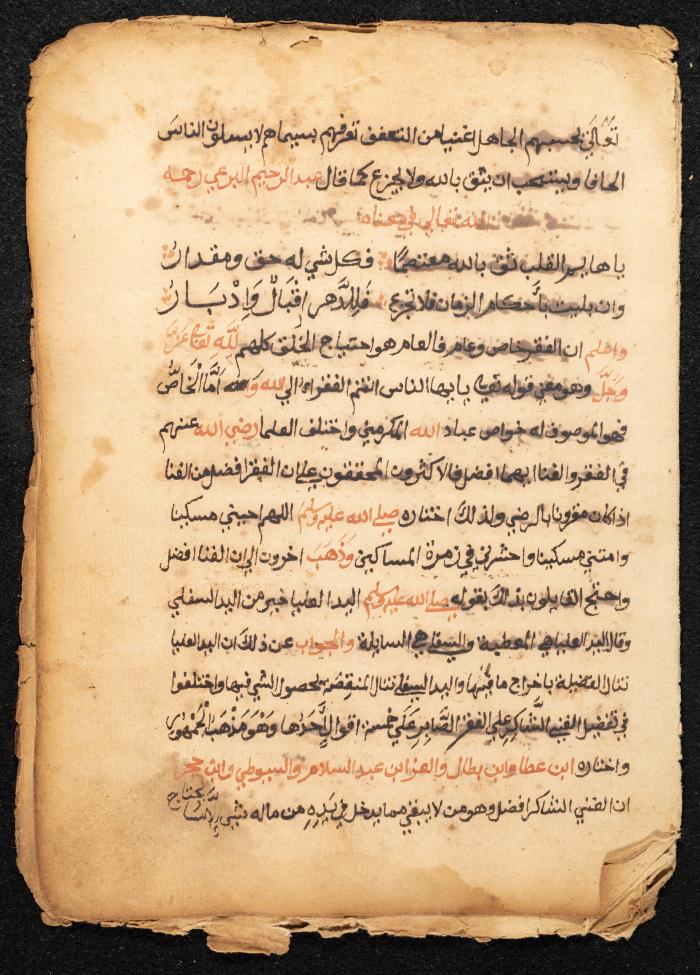 تعالى يحسبهم الجاهل اغنيا من التعفف تعرفهم بسيماهم لايسلون الناس
الحافا ويستحب ان يثق بالله ولا يجزع كما قال عبد الرحيم البرعي رحمه
الله تعالى في معناه
يا هايم القلب ثق بالله معتصمًا فكل شي له حق ومقدار
وان بليت بأحكام الزمان فلا تجزع فَلِلدَّهر إقبَالٌ وَإدْبَار
واعلم ان الفقر خاص وعام فالعام هو احتياج الخلق كلهم للَّهِ تعالى عزَّ
وَجلَّ وهو معني قوله تعالى يا يها الناس انتم الفقراء الي الله وَ أمَّا الخَاصُّ
فهو الموصوف له خواص عباد الله المكرمين واختلف العلما رضي الله عنهم
في الفقر والغنا ايهما افضل فالاكثرون المحققون علي ان الفقر افضل من الغنا
اذا كان مقرونا بالرضي ولذلك اختاره صلي الله عليه وسلم اللهم احيني مسكينا
وامتني مسكينا واحشرني في زمرة المساكين وَذَهَبَ اخرون الي ان الغنا افضل
واحتج القايلون بذلك بقوله صلي الله عليه وسلم اليد العليا خير من اليد السفلي
وقال اليد العليا هي المعطية والسفلي هي السايلة والجواب عن ذلك ان اليد العليا
تنال الفضيلة باخراج ما فيها واليد السفلي تنال المنقصة بحصول الشي فيها واختلفوا
في تفضيل الغني الشَّاكِرِ علي الفقر الصَّابِرِ عَلَي خمسة اقوال أَحدُها وَهْوَ مَذْهَبُ الجُمْهُورِ
واختاره ابن عطا وابن بطال والعز ابن عبد السلام والسيوطي وابن حجر
ان الغني الشاكر افضل وهو من لا يبقي مما يدخل في يَدِهِ من ماله شي إلا ما يحتاج